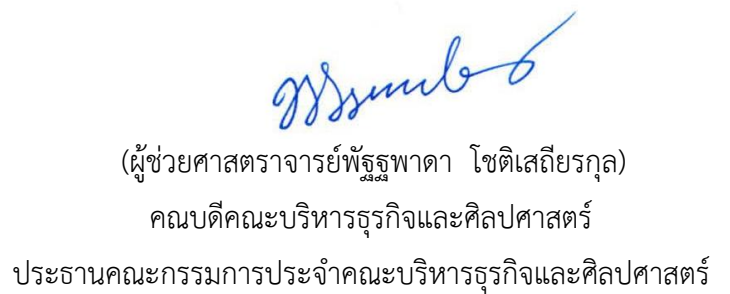 (ผู้ช่วยศาสตราจารย์พัฐฐพาดา  โชติเสถียรกุล)
คณบดีคณะบริหารธุรกิจและศิลปศาสตร์
ประธานคณะกรรมการประจำคณะบริหารธุรกิจและศิลปศาสตร์